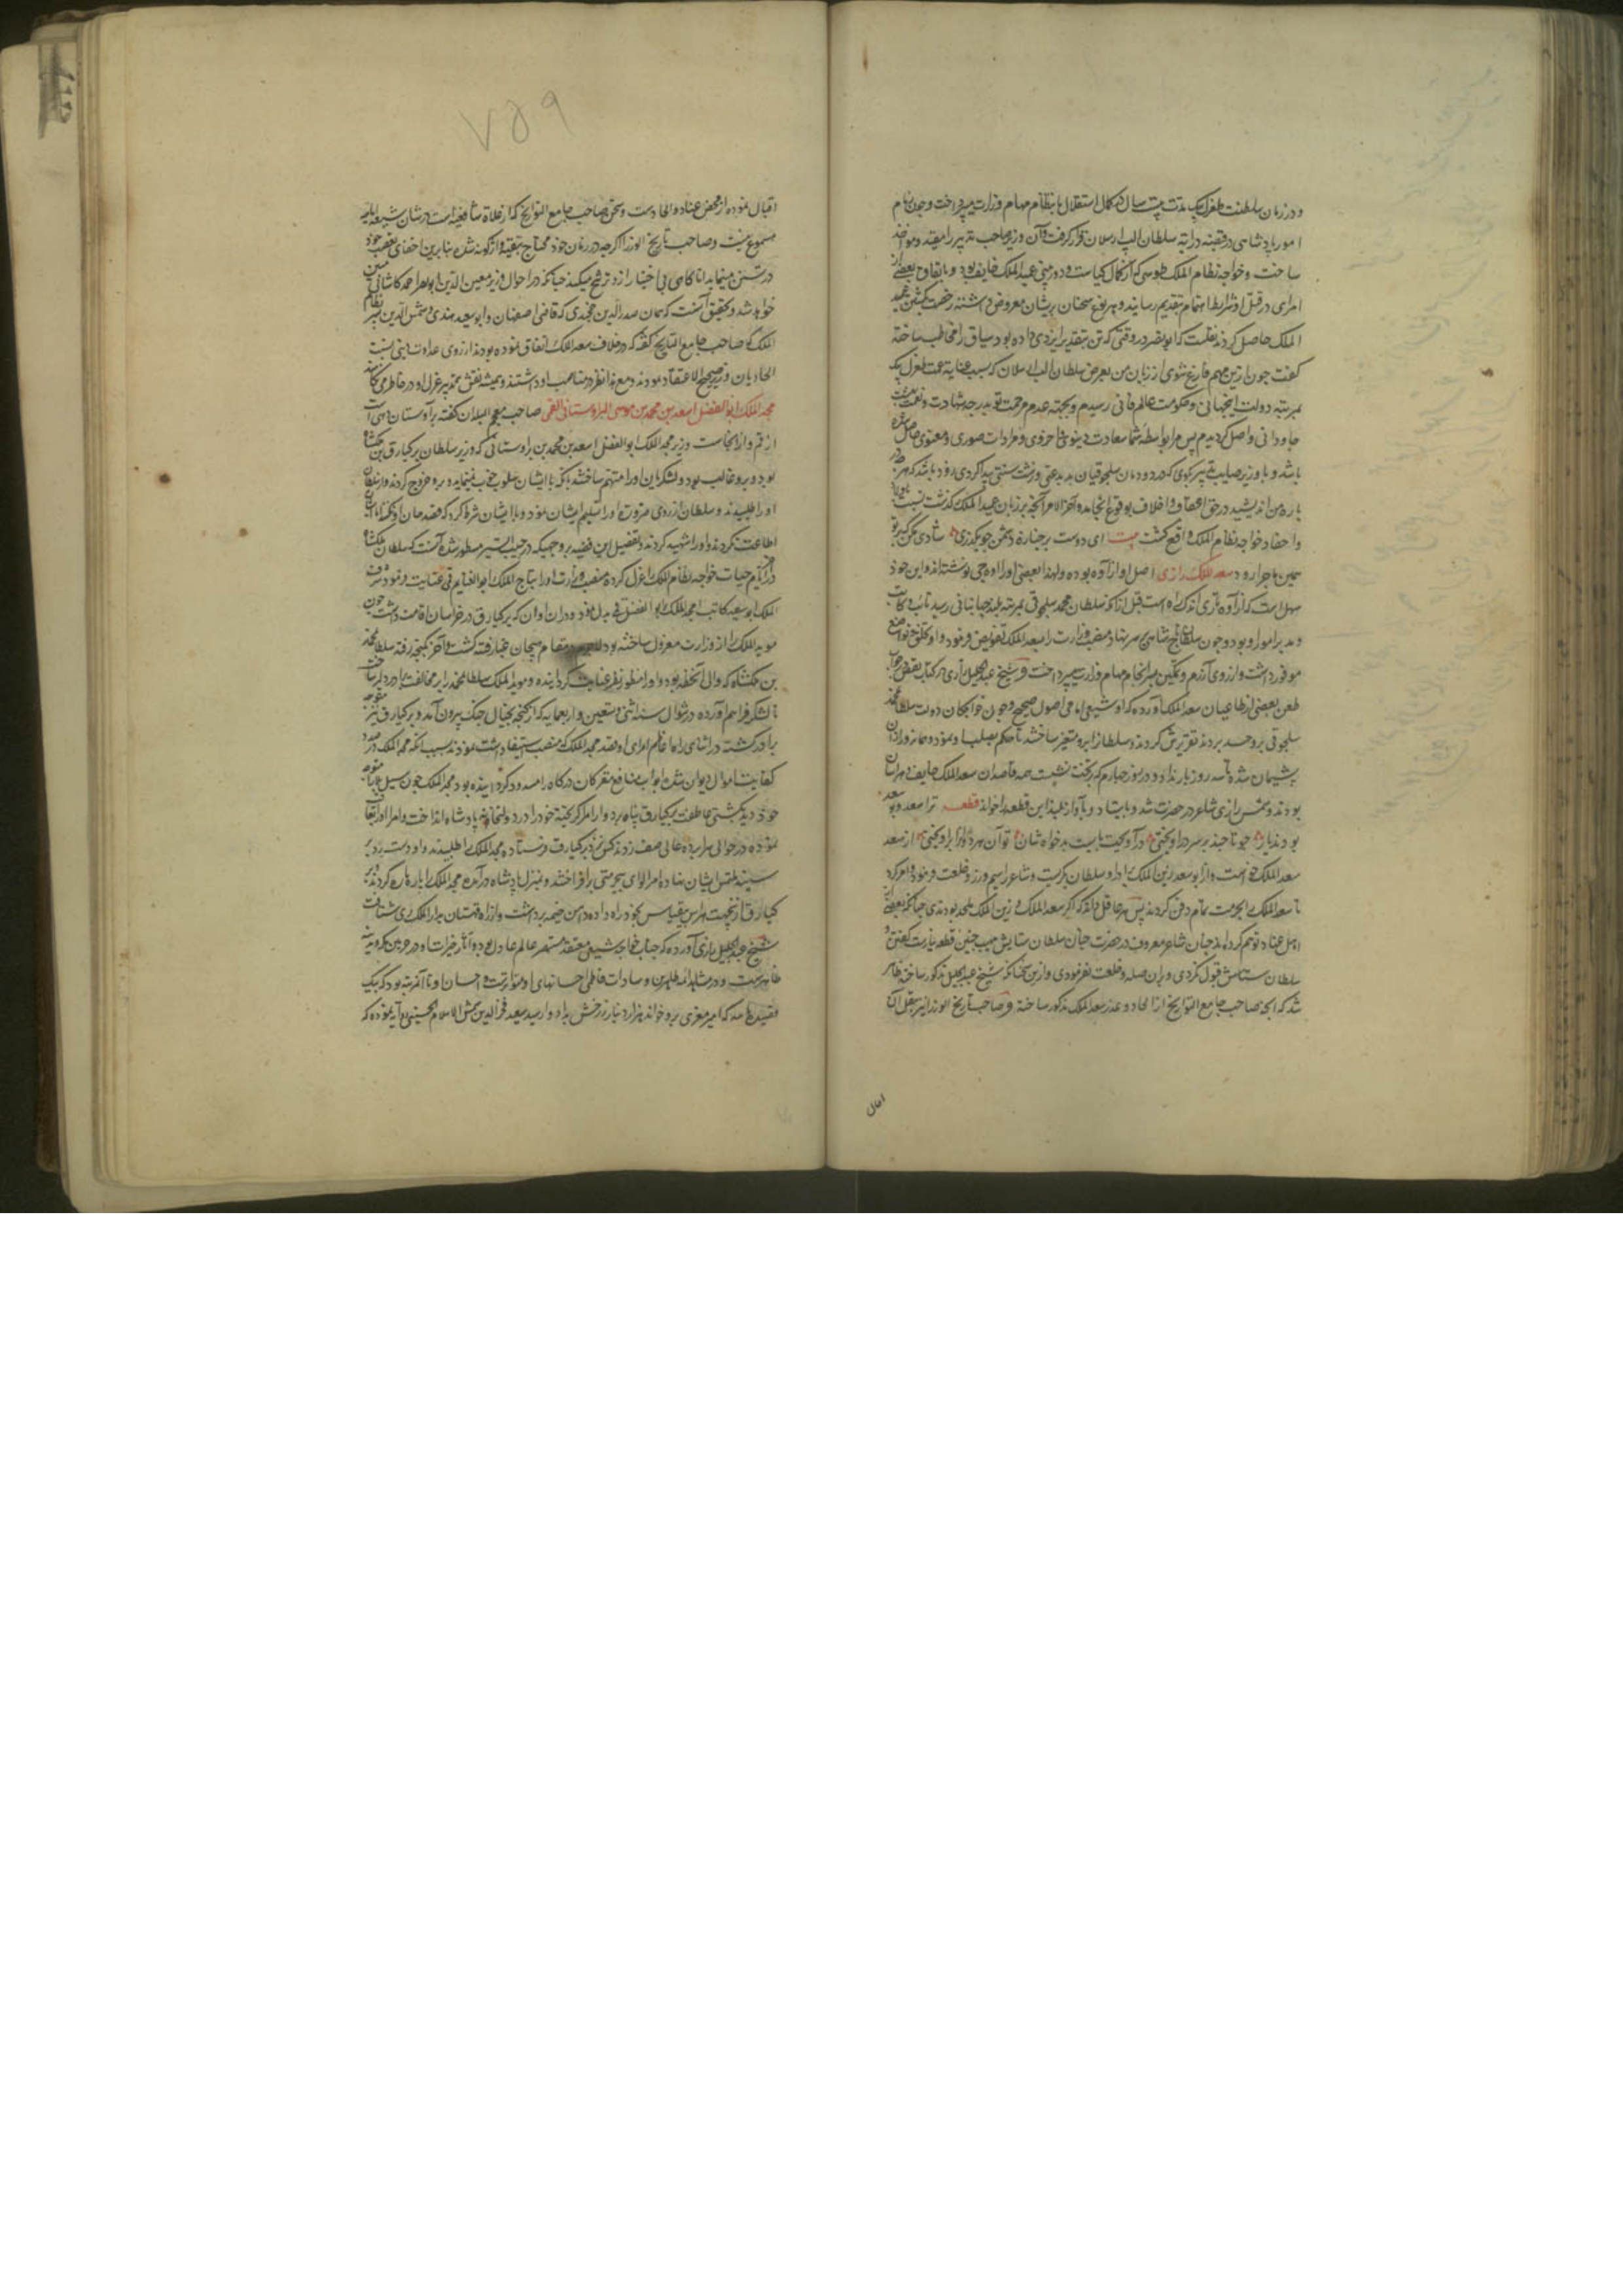 و در زمان سلطنت طغرل بیک مدت بیست سال در کمال استقلال بانتظام مهام وزارت می‌پرداخت و چون زمام
امور پادشاهی در قبضه درایة سلطان الب ارسلان قرار گرفت آن وزیر صاحب تدبیر را مقید و مواخذ
ساخت و خواجه نظام الملک طوسی که از کمال کیاست و دوربینی عمید الملک خایف بود و باتفاق بعضی از
امرای در قتل او شرایط اهتمام بتقدیم رسانیده سخنان پریشان معروض داشته رخصت کشتن عمید
الملک حاصل کردند نقلست که ابونصر در وقتی که تن بتقدیر ایزدی داده بود سیاف را مخاطب ساخته
گفت چون ازین مهم فارغ شوی از زبان من بعرض سلطان الب ارسلان که بسبب عنایة عمت طغرل بیک
بمرتبه دولت اینجهانی و حکومت عالم فانی رسیدم و بجهة عدم مرحمت تو بدرجه شهادت و نعمت بهشت
جاودانی واصل کردیدم پس مرا بواسطه شما سعادت دینوی و اخروی و مرادات صوری و معنوی حاصل شده
باشد و با وزیر بگوی که در دودمان سلجوقیان بد بدعتی و زشت سنتی پیدا کردی زود باشد که هر چه در
باره من اندیشیدی در حق اعقاب و اخلاف بوقوع انجامد و آخر الامر آنچه بر زبان عمید الملک گذشت نسبت باولاد
و احفاد خواجه نظام الملک واقع گشت بیت ای دوست بر جنازه دشمن چو بگذری شادی مکن که بر تو
همین ماجرا رود سعد الملک رازی اصل او از آوه بوده و لهذا بعضی او را اوه‌جی نوشته‌اند و این خود
سهل است که از آوه تا ری اندک راه است قبل از آنکه سلطان محمد سلجوقی بمرتبه بلند جهانبانی رسید نایب و کاتب
و مدبر امور او بود و چون سلطان تاج شاهی بر سر نهاد منصب وزارت را بسعد الملک تفویض فرمود و او بخلق خوش و تواضع
موفور داشت و از روی آزرم و تمکین بسرانجام مهام وزارت می‌پرداخت و شیخ عبد الجلیل رازی در کتاب نقض در جواب
طعن بعضی از طاعیان سعد الملک آورده که او شیعی امامی اصول صحیح و چون خواجکان دولت سلطان محمد
سلجوقی برو حسد بردند تقریرش کردند و سلطان را برو متغیر ساختند تا حکم بصلب او نمود و هم روز از ان
پشیمان شده تا سه روز بار نداد و در روز چهارم که بر تخت نشست همه قاصدان سعد الملک خایف و هراسان
بودند و شمس رازی شاعر در حضرت شد و بایستاد و بآواز بلند این قطعه را خواند قطعه ترا سعد و بو سعد
بودند یار چو تاج چند بر سر در آویختی در آویخت بایست بدخواه شان تو آن هر دو را از بر آویختی از سعد
سعد الملک خواست و از بو سعد زین الملک را و سلطان بکریست و شاعر را سیم و زر و خلعت فرمود و امر کرد
تا سعد الملک را بحرمت تمام دفن کردند پس هر عاقل داند که اگر سعد الملک و زین الملک ملحد بودندی چنانکه بعضی از
اهل عناد توهم کرده‌اند چنان شاعر معروف در حضرت چنان سلطان ستایش همچنین قطعه نیارست گفتن و
سلطان ستایش قبول نکردی و بران صله و خلعت نفرمودی و ازین سخنان که شیخ عبد الجلیل مذکور ساخته ظاهر
شد که آنچه صاحب جامع التواریخ از الحاد و غدر سعد الملک مذکور ساخته و صاحب تاریخ الوزرا نیز بنقل آن
اقبال
۷۵۹
اقبال نموده از محض عناد و الحادست و سخن صاحب جامع التواریخ که از غلاة شافعیه است در شان شیعه امامیه
مسموع نیست و صاحب تاریخ الوزرا اگرچه در زمان خود محتاج بتقیه از ین گونه شده بنابرین اخفای تعصب خود
در تسنن مینماید اما گاهی بی اختیار ازو ترشح میکند چنانکه در احوال وزیر معین الدین ابو نصر احمد کاشانی مبین
خواهد شد و تحقیق آنست که همان صدر الدین خجندی که قاضی اصفهان و ابو سعید هندی و شمس الدین پسر نظام
الملک که صاحب جامع التواریخ گفته که در خلاف سعد الملک اتفاق نموده بودند از روی عداوت دینی نسبت
الحاد بآن وزیر صحیح الاعتقاد نمودند و مع هذا نظر در مناصب او داشتند و همیشه نقش تدبیر عزل او در خاطر می نکاشتند
مجد الملک ابو الفضل اسعد بن محمد بن موسی البراوستانی القمی صاحب معجم البلدان گفته براوستان دیهی است
از قم و از آنجاست وزیر مجد الملک ابو الفضل اسعد بن محمد بن براوستانی که وزیر سلطان برکیارق بن ملکشاه
بود و برو غالب بود و لشکریان او را متهم ساختند بآنکه با ایشان سلوک خوب نمینماید و برو خروج کردند و از سلطان
او را طلبیدند و سلطان از روی ضرورت او را تسلیم ایشان نمود و با ایشان شرط کرد که قصد جان او نکند اما ایشان
اطاعت نکردند و او را شهید کردند و تفصیل این قضیه بر وجهیکه در حبیب السیر مسطور شده آنست که سلطان ملکشاه
در ایام حیات خواجه نظام الملک را عزل کرده منصب وزارت او را بتاج الملک ابو الغنایم قمی عنایت فرمود و شرف
الملک ابو سعید کاتب را بمجد الملک ابو الفضل قمی بدل نمود و دران اوان که برکیارق در خراسان اقامت داشت چون
موید الملک را از وزارت معزول ساخته بود در مقام هیجان غبار فتنه گشت و آخر بگنجه رفته سلطان محمد
بن ملکشاه که والی آنخطه بود او را منظور نظر عنایت گردانیده و موید الملک سلطان محمد را بر مخالفت برادر دلیر ساخت
تا لشکر فراهم آورده در شوال سنه اثنی و تسعین و اربعمایه که از گنجه بخیال جنک بیرون آمد و برکیارق نیز متوجه
برادر گشت در اثنای راه اعاظم امرای او قصد مجد الملک که منصب استیفا داشت نمودند بسبب آنکه مجد الملک در صدد
کفایت اموال دیوان شده ابواب منافع مقربان درگاه را مسدود گردانیده بود مجد الملک چون سیل بلا را متوجه
خود دید بکشتی عاطفت برکیارق پناه برد و امرا گریخته خود را در دولتخانه پادشاه انداخت و امرا او را تعاقب
نموده در حوالی سراپرده عالی صف زدند کس نزد برکیارق فرستاده مجد الملک را طلبیدند و او دست رد بر
سینه ملتمس ایشان نهاده امرا لوای بیحرمتی برافراختند و بمنزل پادشاه درآمده مجد الملک را پاره پاره کردند و بر
کیارق ازینجهت هراس بیقیاس بخود راه داده دامن خیمه برداشت و از راه قهستان بدار الملک ری شتافت
شیخ عبد الجلیل رازی آورده که جناب خواجه شیعی معتقد مستبصر عالم عادل بوده و آثار خیرات او در حرمین مکه و مدینه
ظاهرست و در مشاهد ائمه طاهرین و سادات فاطمی احسانهای او متواترست و احسان او تا آنمرتبه بود که بیک
قصیده نامه که امیر معزی برو خواند هزار دینار زر سرخش بداد و از سید سعید فخر الدین شمس الاسلام الحسینی روایت نموده که